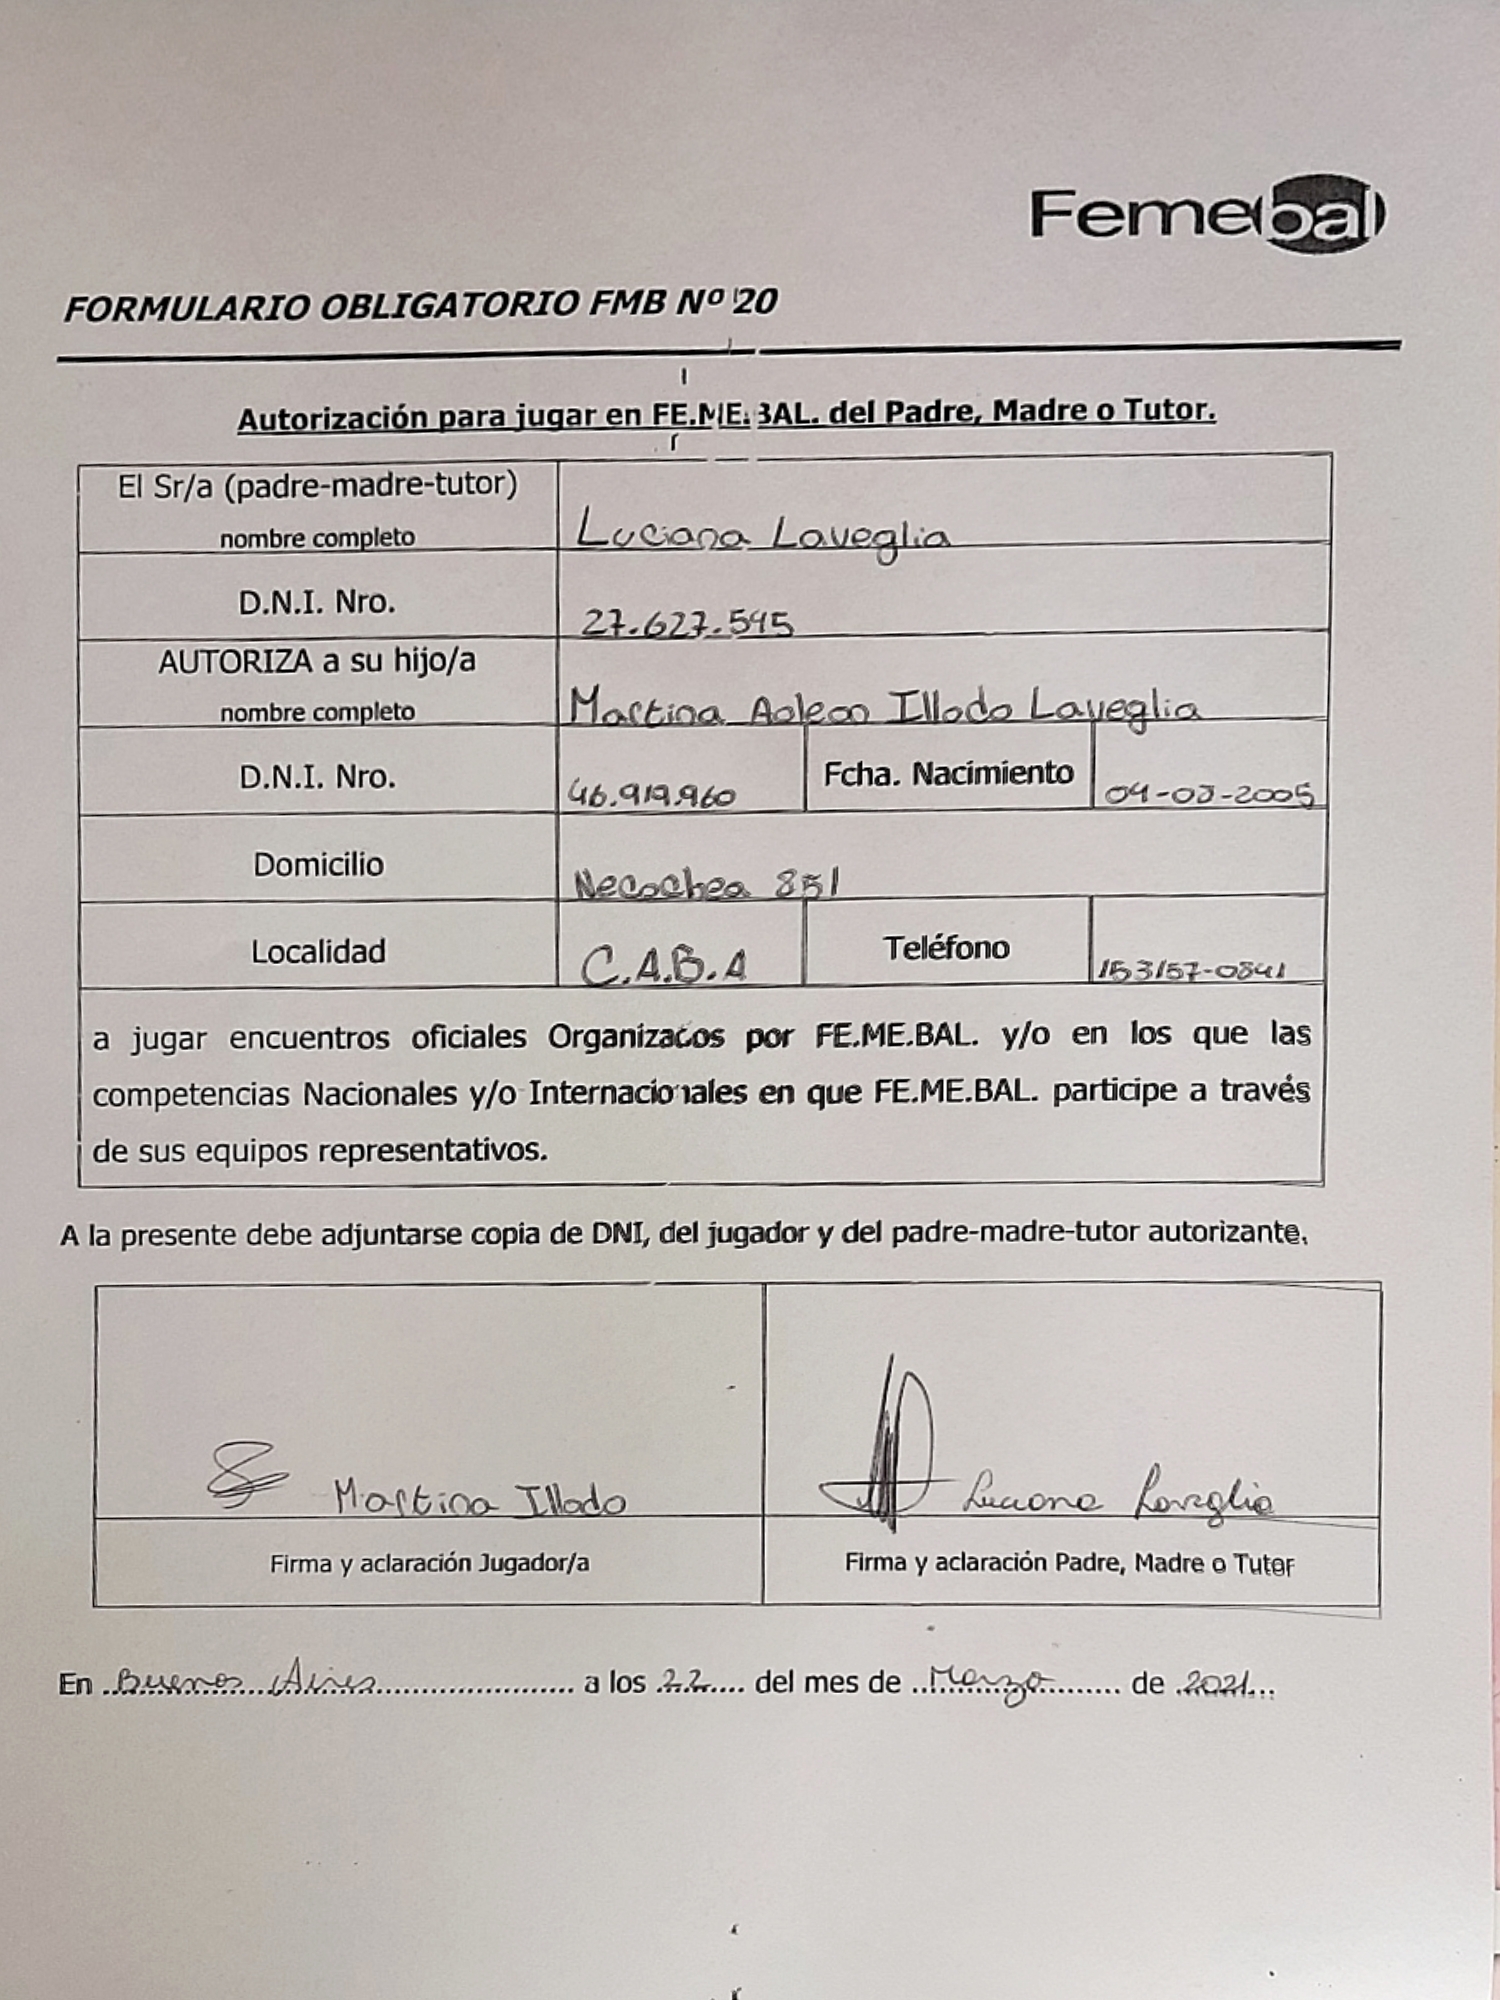 Femebal
FORMULARIO OBLIGATORIO FMB Nº 20
Autorización para jugar en FE.ME.BAL. del Padre, Madre o Tutor.
El Sr/a (padre-madre-tutor)
nombre completo
Luciana Laveglia
D.N.I. Nro.
27.627.545
AUTORIZA a su hijo/a
nombre completo
Martina Illodo Laveglia
D.N.I. Nro.
46.919.960
Fcha. Nacimiento
2005
Domicilio
Necochea 851
Localidad
C.A.B.A
Teléfono
a jugar encuentros oficiales Organizados por FE.ME.BAL. y/o en los que las
competencias Nacionales y/o Internacionales en que FE.ME.BAL. participe a través
de sus equipos representativos.
A la presente debe adjuntarse copia de DNI, del jugador y del padre-madre-tutor autorizante.
Martina Illodo
Luciana Laveglia
Firma y aclaración Jugador/a
Firma y aclaración Padre, Madre o Tutor
En Buenos Aires a los 22 del mes de Marzo de 2021